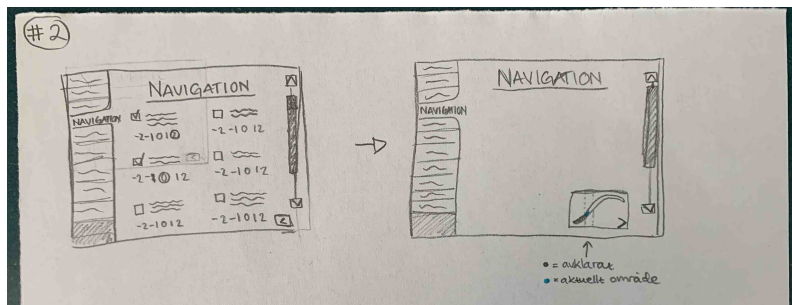 #2
NAVIGATION
NAVIGATION
-2-1012
-2-1012
-2-1012
-2-1012
-2-1012
-2-1012
NAVIGATION
NAVIGATION
= avklarat
= aktuellt område